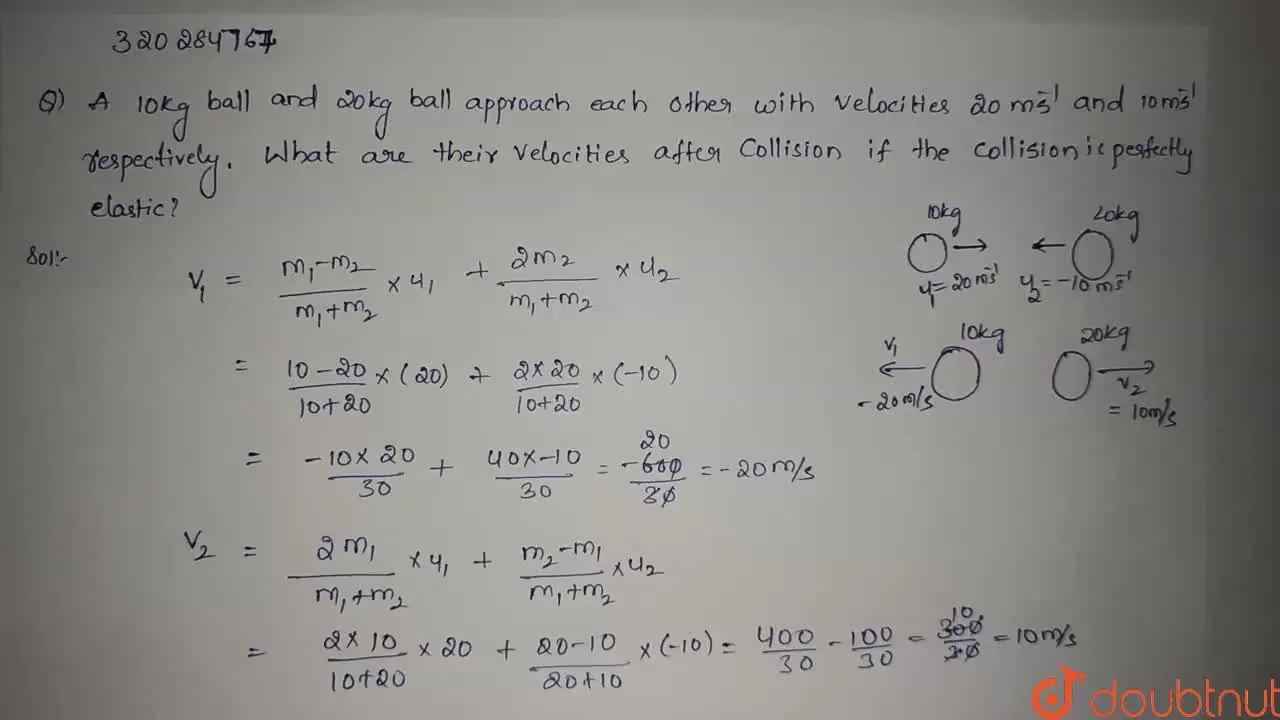 320284767
Q) A 10kg ball and 20kg ball approach each other with velocities 20 ms⁻¹ and 10ms⁻¹
respectively. What are their velocities after Collision if the collision is perfectly
elastic?
Sol:-
10kg 20kg
u₁ = 20 ms⁻¹ u₂ = -10 ms⁻¹
V₁ = (m₁-m₂)/(m₁+m₂) × u₁ + 2m₂/(m₁+m₂) × u₂
V₁ 10kg 20kg
-20m/s V₂
= 10m/s
= (10-20)/(10+20) × (20) + (2×20)/(10+20) × (-10)
= (-10×20)/30 + (40×-10)/30 = -600/30 = -20m/s
20
V₂ = 2m₁/(m₁+m₂) × u₁ + (m₂-m₁)/(m₁+m₂) × u₂
= (2×10)/(10+20) × 20 + (20-10)/(20+10) × (-10) = 400/30 - 100/30 = 300/30 = 10m/s
10
doubtnut